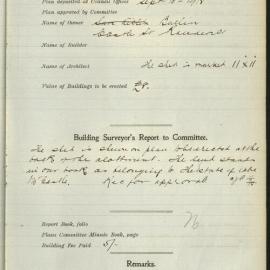 Plan deposited at Council offices Sept 10 - 1918
Plan approved by Committee
Name of owner Batten
Castle St Randwick
Name of Builder
Name of Architect The shed is marked 11 x 11
Value of Buildings to be erected £8.
Building Surveyor's Report to Committee.
The shed is shewn on plan to be erected at the
back of the allotment. The land stands
in our book as belonging to the estate of late
Rec for approval
Report Book, folio
Plans Committee Minute Book, page
Building Fee Paid 5/-
Remarks.